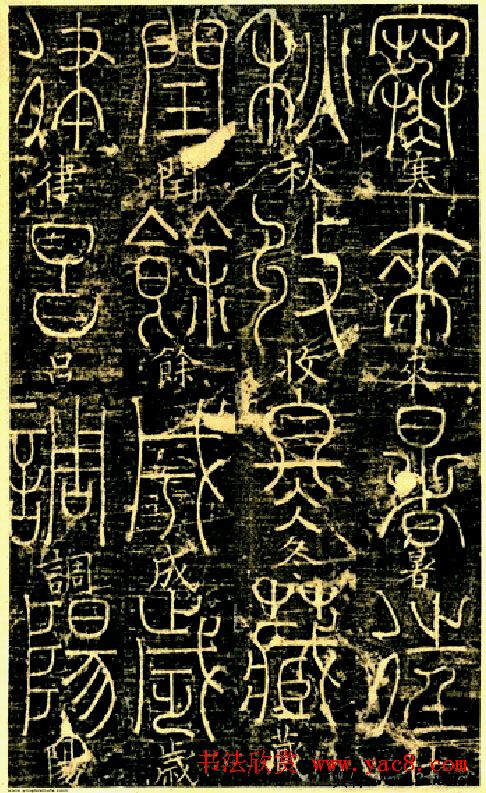 寒寒來來暑暑往
秋秋收收冬冬藏藏
閏閏餘餘成成歲歲
律律呂呂調調陽陽
书法欣赏 www.yac8.com